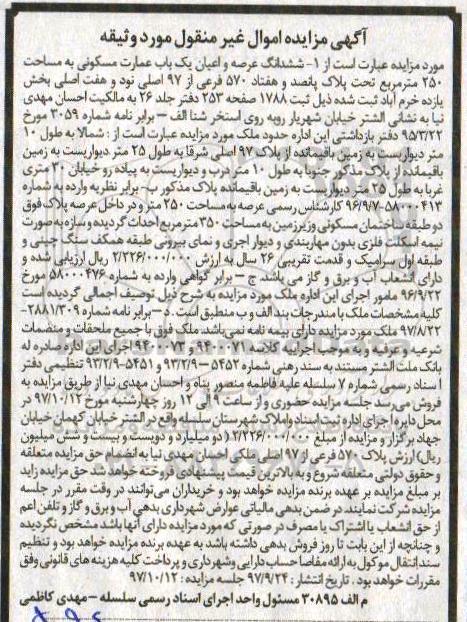 آگهی مزایده اموال غیر منقول مورد وثیقه
مورد مزایده عبارت است از ۱- ششدانگ عرصه و اعیان یک باب عمارت مسکونی به مساحت
۲۵۰ مترمربع تحت پلاک پانصد و هفتاد ۵۷۰ فرعی از ۹۷ اصلی نود و هفت اصلی بخش
یازده خرم آباد ثبت شده ذیل ثبت ۱۷۸۸ صفحه ۲۵۳ دفتر جلد ۲۶ به مالکیت احسان مهدی
نیا به نشانی الشتر خیابان شهریار روبه روی استخر شنا الف – برابر نامه شماره ۳۰۵۹ مورخ
۹۵/۳/۲۲ دفتر بازداشتی این اداره حدود ملک مورد مزایده عبارت است از : شمالا به طول ۱۰
متر دیواریست به زمین باقیمانده از پلاک ۹۷ اصلی شرقا به طول ۲۵ متر دیواریست به زمین
باقیمانده از پلاک مذکور جنوبا به طول ۱۰ متر درب و دیواریست به پیاده رو خیابان ۳۰ متری
غربا به طول ۲۵ متر دیواریست به زمین باقیمانده پلاک مذکور ب- برابر نظریه وارده به شماره
۵۸۰۰۰۴۱۳-۹۶/۹/۷ کارشناس رسمی عرصه به مساحت ۲۵۰ متر و در داخل عرصه پلاک فوق
دو طبقه ساختمان مسکونی و زیرزمین به مساحت ۳۵۰ مترمربع احداث گردیده و سازه به صورت
نیمه اسکلت فلزی بدون مهاربندی و دیوار اجری و نمای بیرونی طبقه همکف سنگ چینی و
طبقه اول سرامیک و قدمت تقریبی ۲۶ سال به ارزش ۲/۲۲۶/۰۰۰/۰۰۰ ریال ارزیابی شده و
دارای انشعاب آب و برق و گاز می باشد ج – برابر گواهی وارده به شماره ۵۸۰۰۰۴۷۶ مورخ
۹۶/۹/۲۲ مامور اجرای این اداره ملک مورد مزایده به شرح ذیل توصیف اجمالی گردیده است
کلیه مشخصات ملک با مندرجات بند الف و ب منطبق است. د – برابر نامه شماره ۲۸۸۱/۳۰۹-
۹۷/۸/۲۲ ملک مورد مزایده دارای بیمه نامه نمی باشد. ملک فوق با جمیع ملحقات و منضمات
شرعیه و عرفیه و به موجب اجراییه کلاسه ۹۴۰۰۰۷۱ و ۹۴۰۰۰۷۲ اجرای این اداره صادره له
بانک ملت الشتر مستند به سند رهنی شماره ۵۴۵۲ – ۹۳/۲/۹ و ۵۴۵۱-۹۳/۲/۹ تنظیمی دفتر
اسناد رسمی شماره ۷ سلسله علیه فاطمه منصور پناه و احسان مهدی نیا از طریق مزایده به
فروش می رسد جلسه مزایده حضوری و از ساعت ۹ الی ۱۲ روز چهارشنبه مورخ ۹۷/۱۰/۱۲ در
محل دایره اجرای اداره ثبت اسناد و املاک شهرستان سلسله واقع در الشتر خیابان کهمان خیابان
جهاد برگزار و مزایده از مبلغ ۲/۲۲۶/۰۰۰/۰۰۰ (دو میلیارد و دویست و بیست و شش میلیون
ریال) ارزش پلاک ۵۷۰ فرعی از ۹۷ اصلی ملکی احسان مهدی نیا به انضمام حق مزایده متعلقه
و حقوق دولتی متعلقه شروع و به بالاترین قیمت پیشنهادی فروخته خواهد شد حق مزایده زاید
بر مبلغ مزایده بر عهده برنده مزایده خواهد بود و خریداران می توانند در وقت مقرر در جلسه
مزایده شرکت نمایند در ضمن بدهی مالیاتی عوارض شهرداری بدهی آب و برق و گاز و تلفن اعم
از حق انشعاب یا اشتراک یا مصرف در صورتی که مورد مزایده دارای آنها باشد مشخص نگردیده
و چنانچه از این بابت تا روز فروش بدهی داشته باشد به عهده برنده مزایده خواهد بود و تنظیم
سند انتقال موکول به ارائه مفاصا حساب دارایی و شهرداری و پرداخت کلیه هزینه های قانونی وفق
مقررات خواهد بود . تاریخ انتشار : ۹۷/۹/۲۴ جلسه مزایده : ۹۷/۱۰/۱۲
م الف ۳۰۸۹۵ مسئول واحد اجرای اسناد رسمی سلسله – مهدی کاظمی